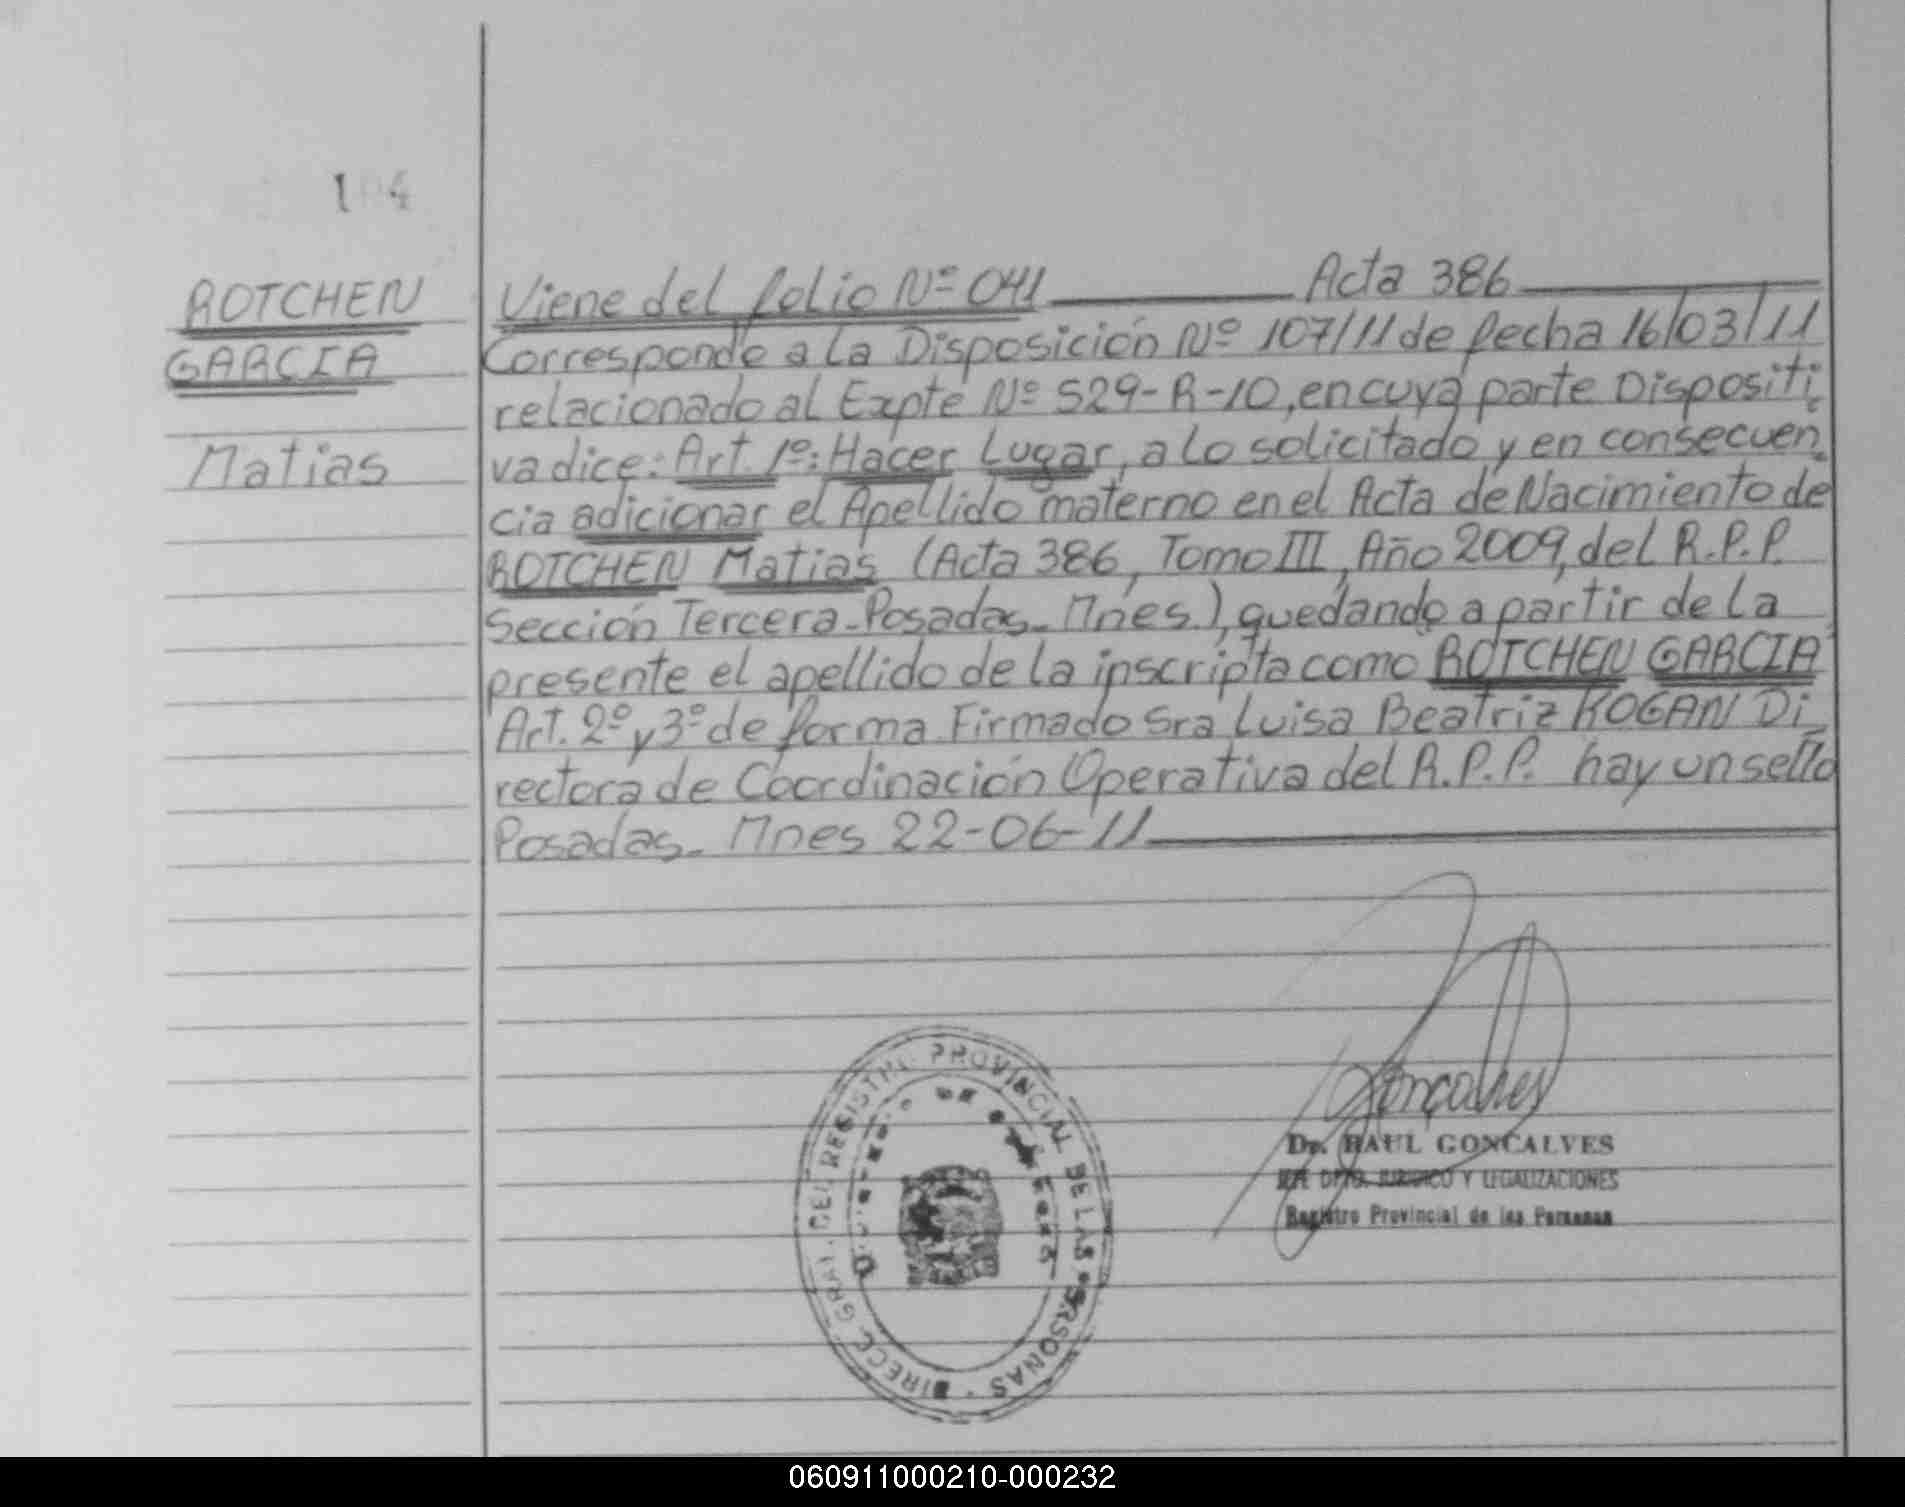 104
ROTCHEN
GARCIA
Matias
Viene del folio Nº 041 Acta 386
Corresponde a la Disposición Nº 107/11 de fecha 16/03/11
relacionado al Expte Nº 529-R-10, en cuya parte Dispositi
va dice: Art. 1º: Hacer Lugar, a lo solicitado y en consecuen
cia adicionar el Apellido materno en el Acta de Nacimiento de
ROTCHEN Matias (Acta 386, Tomo III, Año 2009, del R.P.P.
Sección Tercera-Posadas-Mnes.), quedando a partir de la
presente el apellido de la inscripta como ROTCHEN GARCIA
Art. 2º y 3º de forma Firmado Sra Luisa Beatriz KOGAN Di
rectora de Coordinación Operativa del R.P.P. hay un sello
Posadas- Mnes 22-06-11
DIRECC. GRAL. DEL REGISTRO PROVINCIAL DE LAS PERSONAS
Gonçalves
Dr. RAUL GONCALVES
JEFE DPTO. JURIDICO Y LEGALIZACIONES
Registro Provincial de las Personas
060911000210-000232